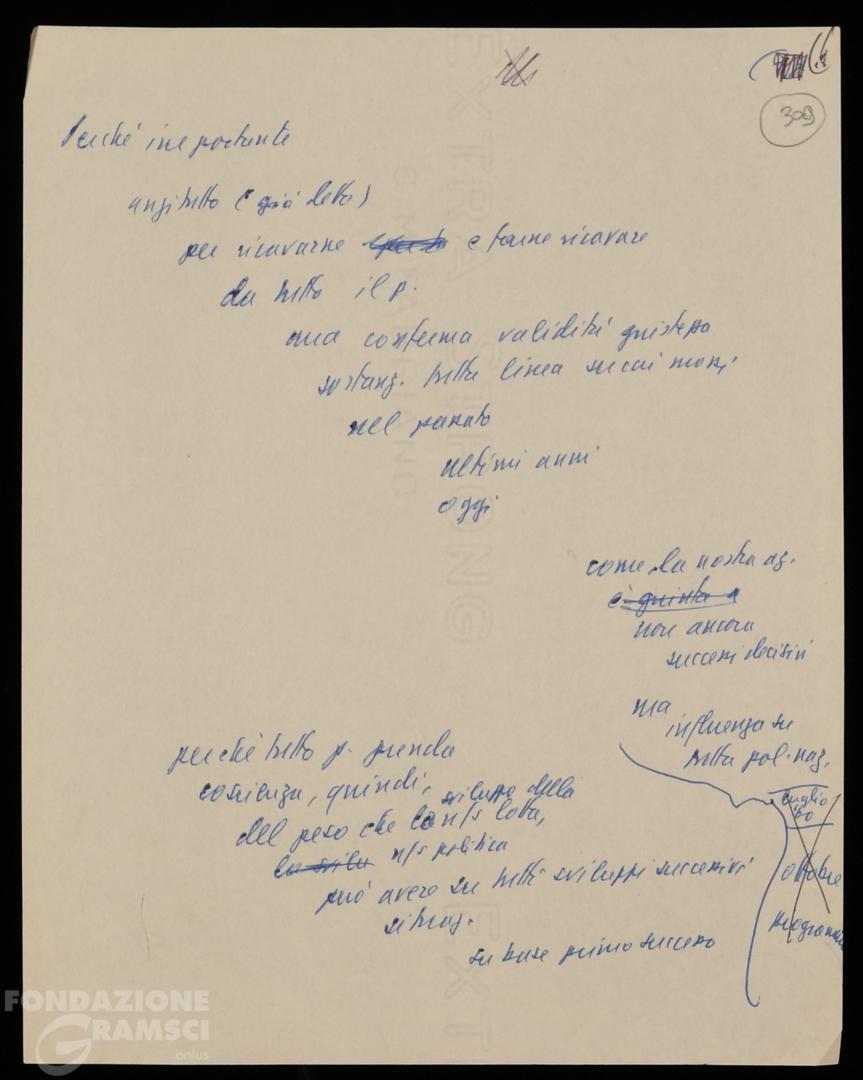 309
Perché importante
anzitutto (già detto)
per ricavarne e farne ricavare
da tutto il p.
una conferma validità giustezza
sostanz. tutta linea successi
nel passato
ultimi anni
oggi
come la nostra az.
è giusta
non ancora
successi decisivi
ma
influenza su
tutta pol. naz.
perché tutto p. prenda
coscienza, quindi, sviluppo della
del peso che la n/s lotta,
la svilu n/s politica
può avere su tutti sviluppi successivi
situaz.
su base primo successo
luglio
'60
ottobre
programma
EXTRA STRONG
EXT
FONDAZIONE
GRAMSCI
onlus